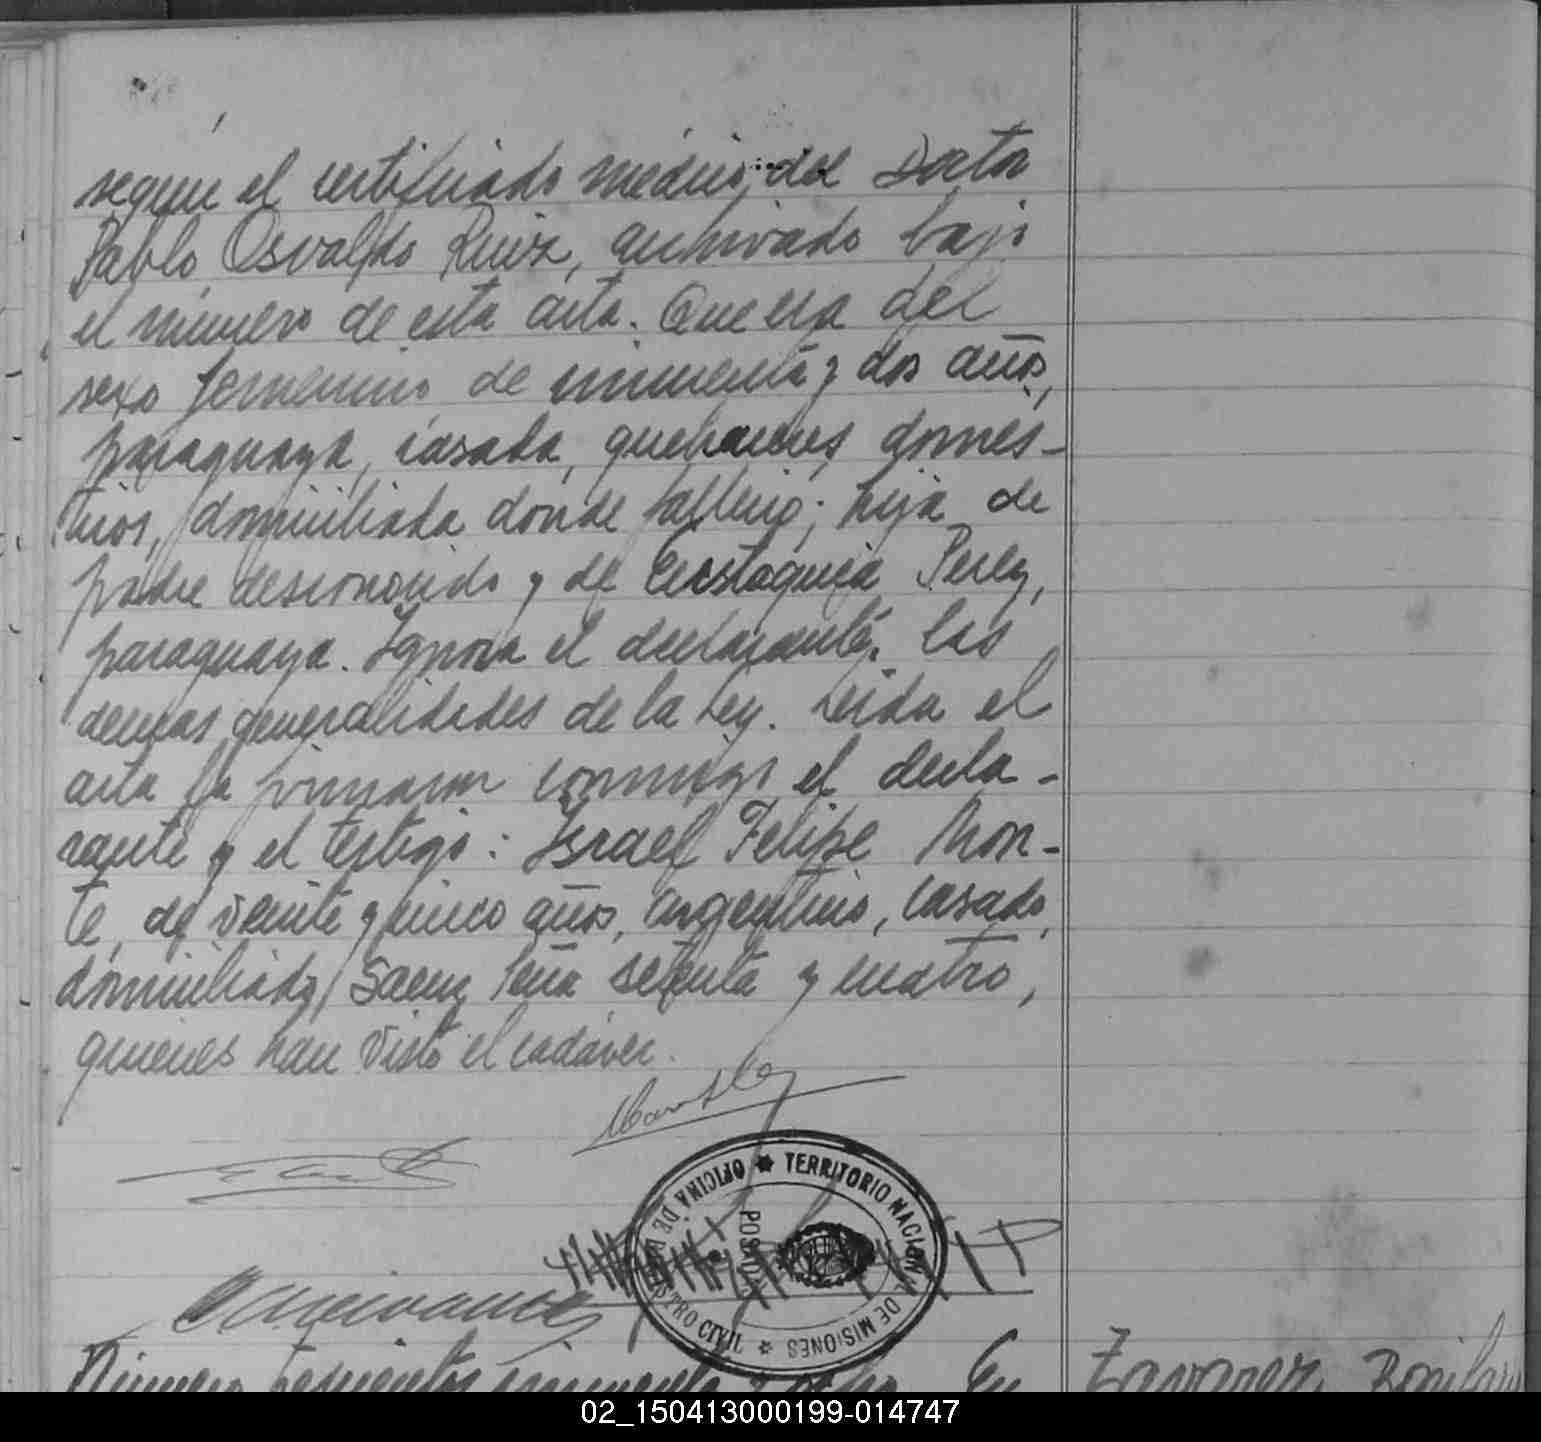 segun el certificado médico del Doctor
Pablo Osvaldo Ruiz, archivado bajo
el número de esta acta. Que era del
sexo femenino de cincuenta y dos años,
paraguaya, casada, quehaceres domés-
ticos, domiciliada donde falleció; hija de
padre desconocido y de Eustaquia Perez,
paraguaya. Ignora el declarante las
demas generalidades de la Ley. Leida el
acta la firmaron conmigo el decla-
rante y el testigo: Israel Felipe Mon-
te, de veinte y cinco años, argentino, casado,
domiciliado Saenz Peña setenta y cuatro,
quienes han visto el cadáver.
OFICINA DE REGISTRO CIVIL ★ TERRITORIO NACIONAL DE MISIONES ★
POSADAS
Número trescientos cincuenta y ocho. En
Zavarez, Bonifac
02_150413000199-014747